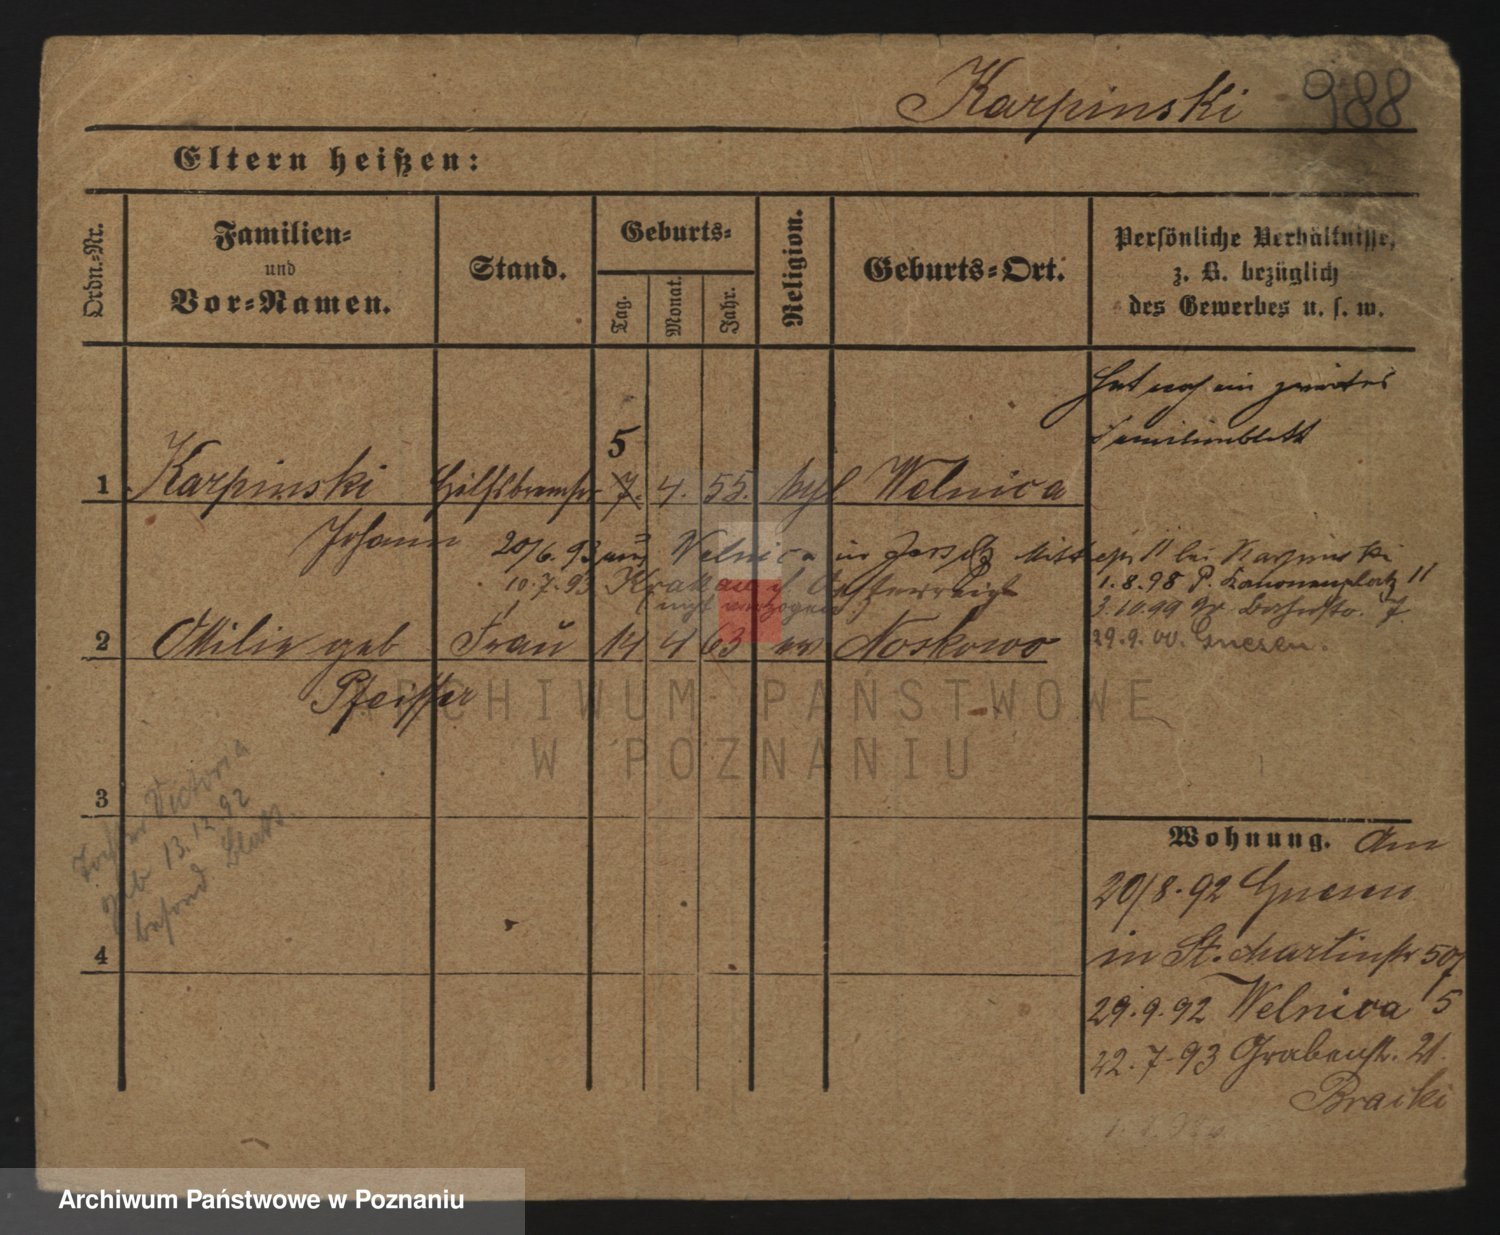 Karpinski 988
Eltern heißen:
Ordn.-Nr.
Familien-
und
Vor-Namen.
Stand.
Geburts-
Tag.
Monat.
Jahr.
Religion.
Geburts-Ort.
Persönliche Verhältnisse,
z. B. bezüglich
des Gewerbes u. s. w.
Hat noch ein zweites
Familienblatt
5
1 Karpinski Hilfsbremser 7. 4. 55. kyl Welnica
Johann
20/6.93 Welnica in Jersitz bei Karpinski
10.7.93 Krakau in Oesterreich
(nicht verzogen)
1.8.98 P. Kanonenplatz 11
3.10.99 Gr. 7
29.9.00. Gnesen.
2 Ottilie geb Frau 14 4 63 ev Noskowo
Pfeiffer
3
Tochter Victoria
geb 13.12.92
besond Blatt
4
Wohnung. Am
20/8.92 Gnesen
in St. Martinstr 50/
29.9.92 Welnica 5
22.7.93 Grabenstr. 21.
Bracki
ARCHIWUM PAŃSTWOWE
W POZNANIU
Archiwum Państwowe w Poznaniu